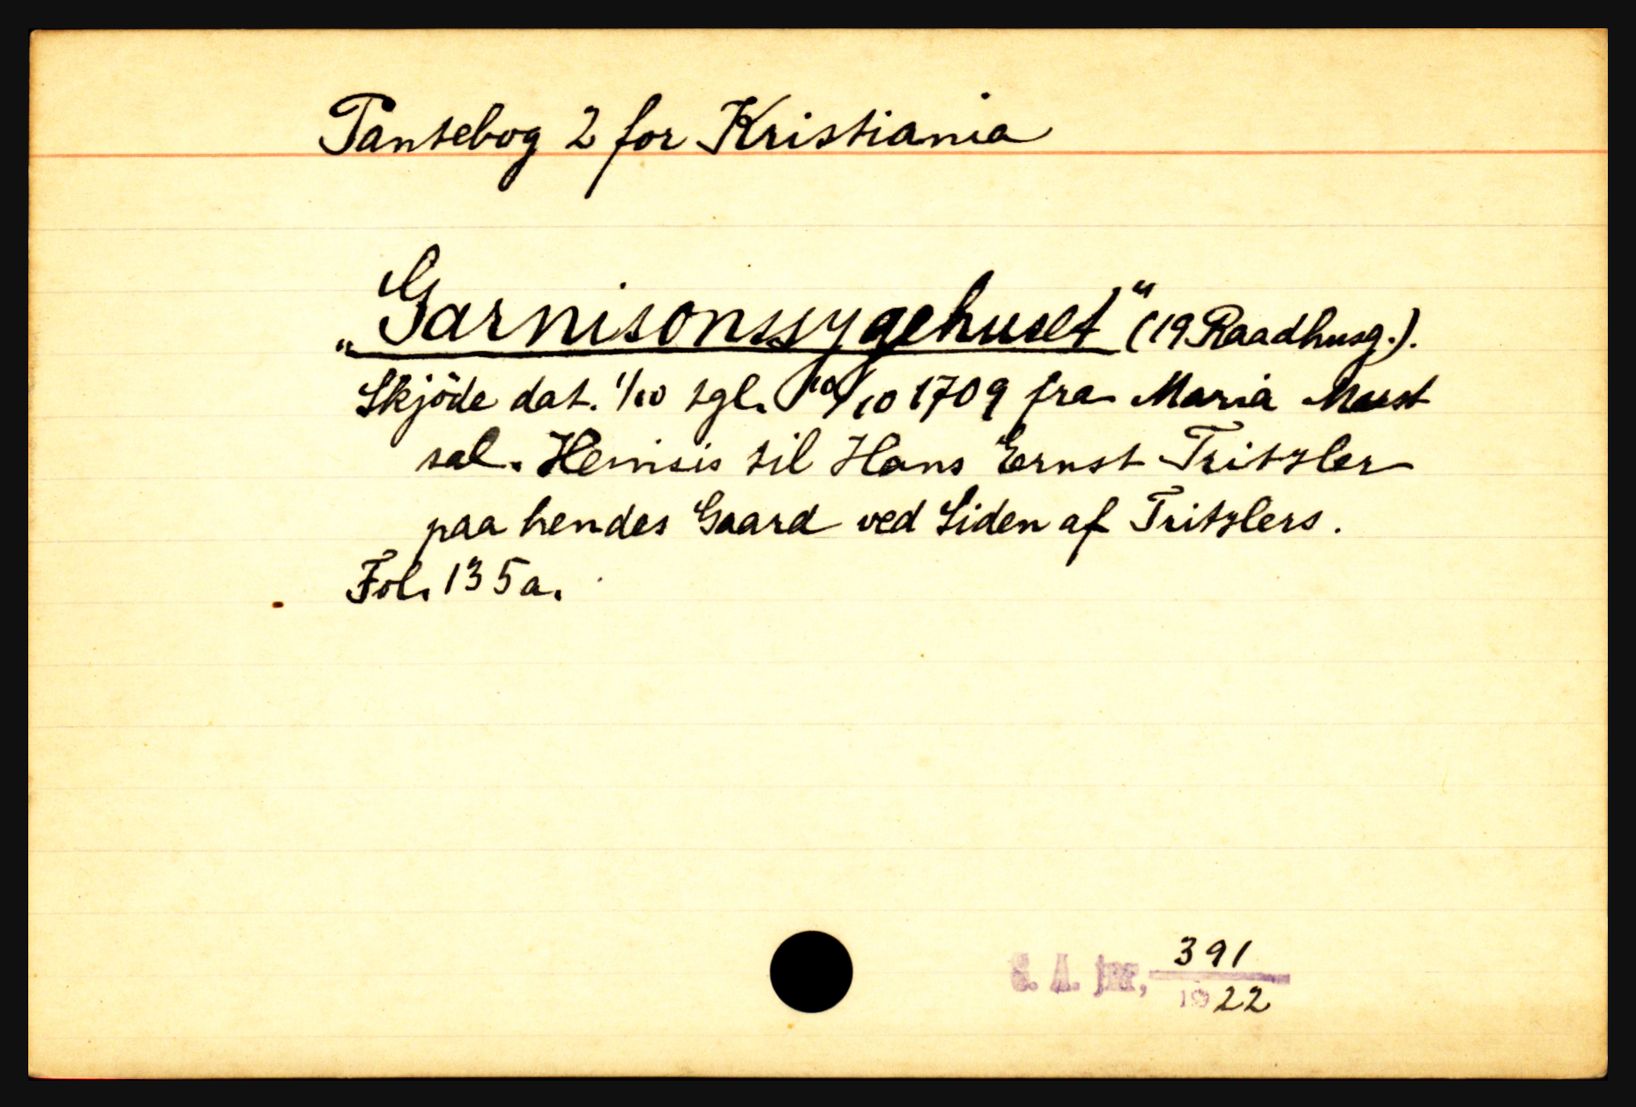 Pantebog 2 for Kristiania
„Garnisonssygehuset“ (19 Raadhusg.).
Skjöde dat. 1/10 tgl. 10/10 1709 fra Maria
sal. Heinsis til Hans Ernst Tritzler
paa hendes Gaard ved Siden af Tritzlers.
Fol. 135a.
S. A. jnr, 391
1922